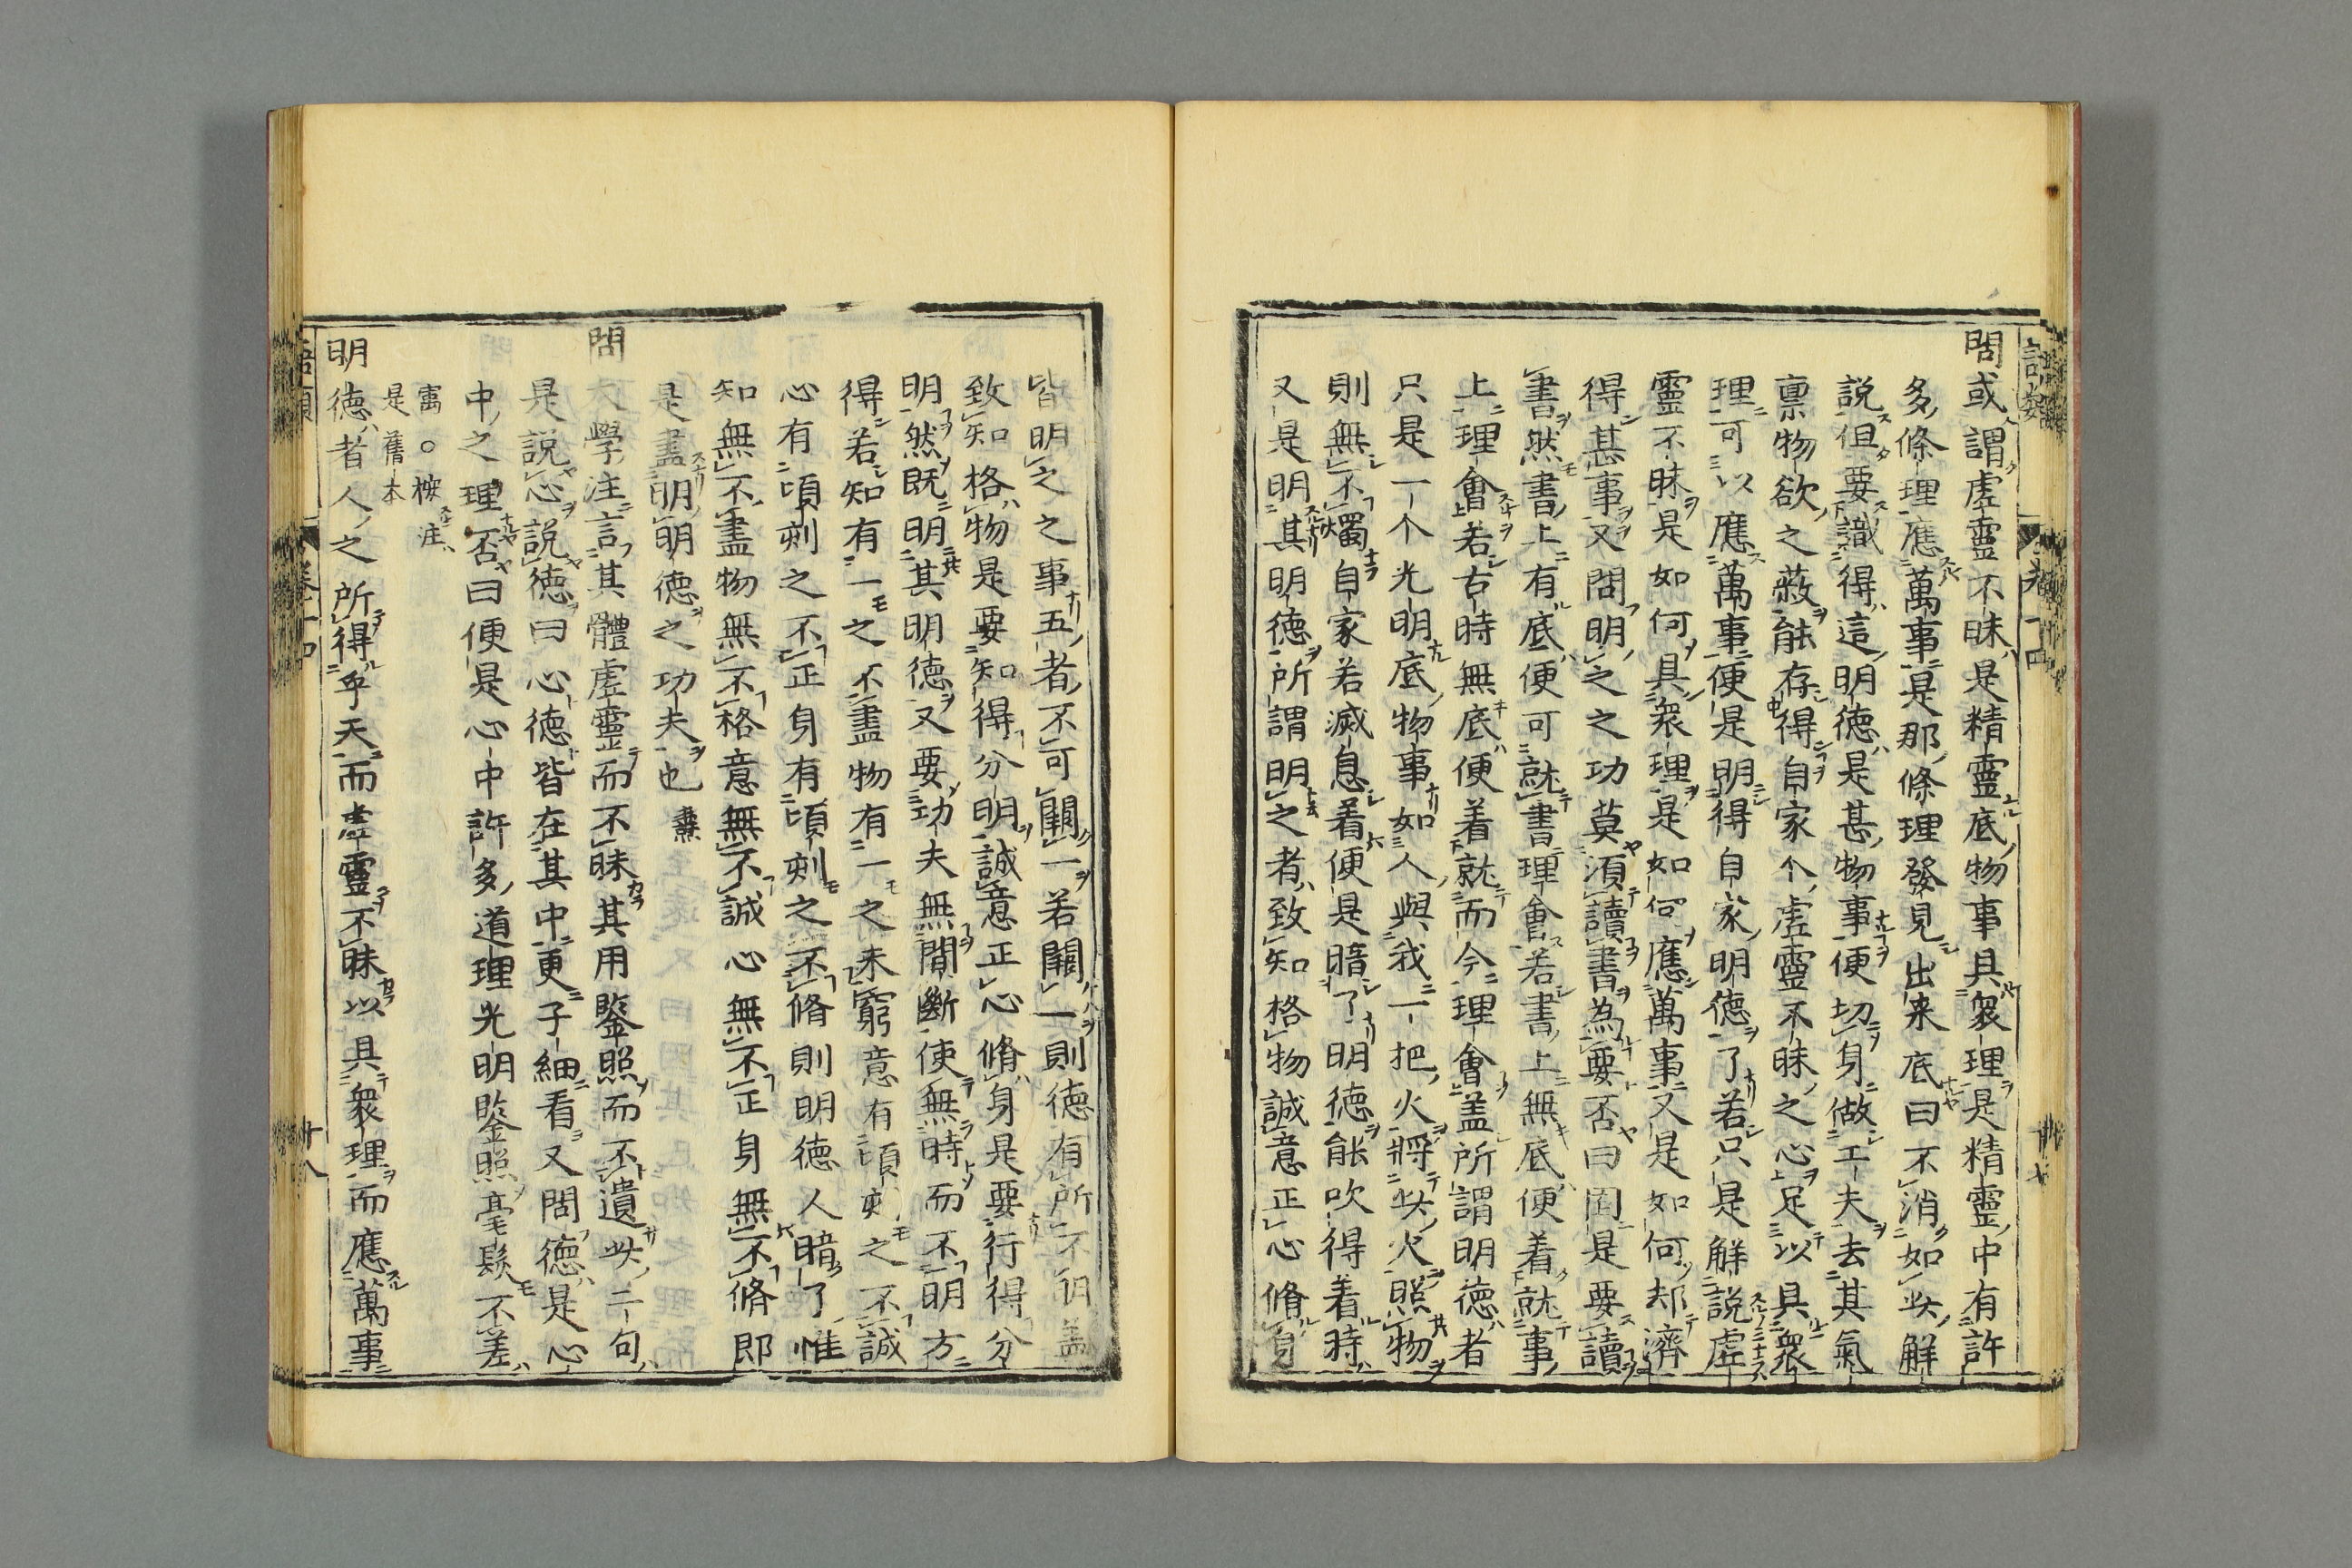 問或謂虛靈不昧是精靈底物事具衆理是精靈中有許
多條理應萬事是那條理發見出来底曰不消如此解
說但要識得這明德是甚物事便切身做工夫去其氣
禀物欲之蔽能存得自家个虛靈不昧之心足以具衆
理可以應萬事便是明得自家明德了若只是解說虛
靈不昧是如何具衆理是如何應萬事又是如何却濟
得甚事又問明之之功莫須讀書為要否曰固是要讀
書然書上有底便可就書理會若書上無底便着就事
上理會若古時無底便着就而今理會盖所謂明德者
只是一个光明底物事如人與我一把火將此火照物
則無不燭自家若滅息着便是暗了明德能吹得着時
又是明其明德所謂明之者致知格物誠意正心脩身
皆明之之事五者不可闕一若闕一則德有所不明盖
致知格物是要知得分明誠意正心脩身是要行得分
明然既明其明德又要功夫無間斷使無時而不明方
得若知有一之不盡物有一之未窮意有頃刻之不誠
心有頃刻之不正身有頃刻之不脩則明德人暗了惟
知無不盡物無不格意無不誠心無不正身無不脩即
是盡明明德之功夫也 燾
問大學注言其體虛靈而不昧其用鑒照而不遺此二句
是說心說德曰心德皆在其中更子細看又問德是心
中之理否曰便是心中許多道理光明鑒照毫髮不差
寓○按注
是舊本
明德者人之所得乎天而虛靈不昧以具衆理而應萬事
語類
卷十四
十八